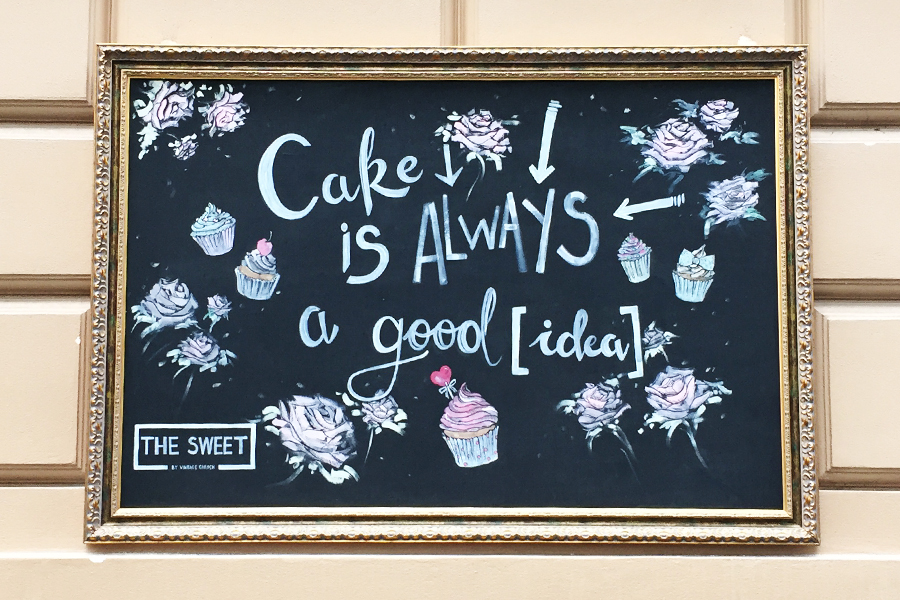 Cake
is ALWAYS
a good [idea]
THE SWEET
BY VINTAGE GARDEN